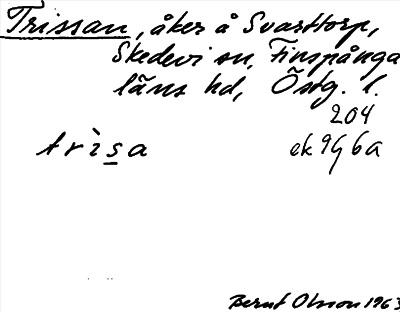 Trissan, åker å Svarttorp,
Skedevi sn, Finspånga
läns hd, Östg. l.
204
trìsa ek 9G6a
Bernt Olsson 1963